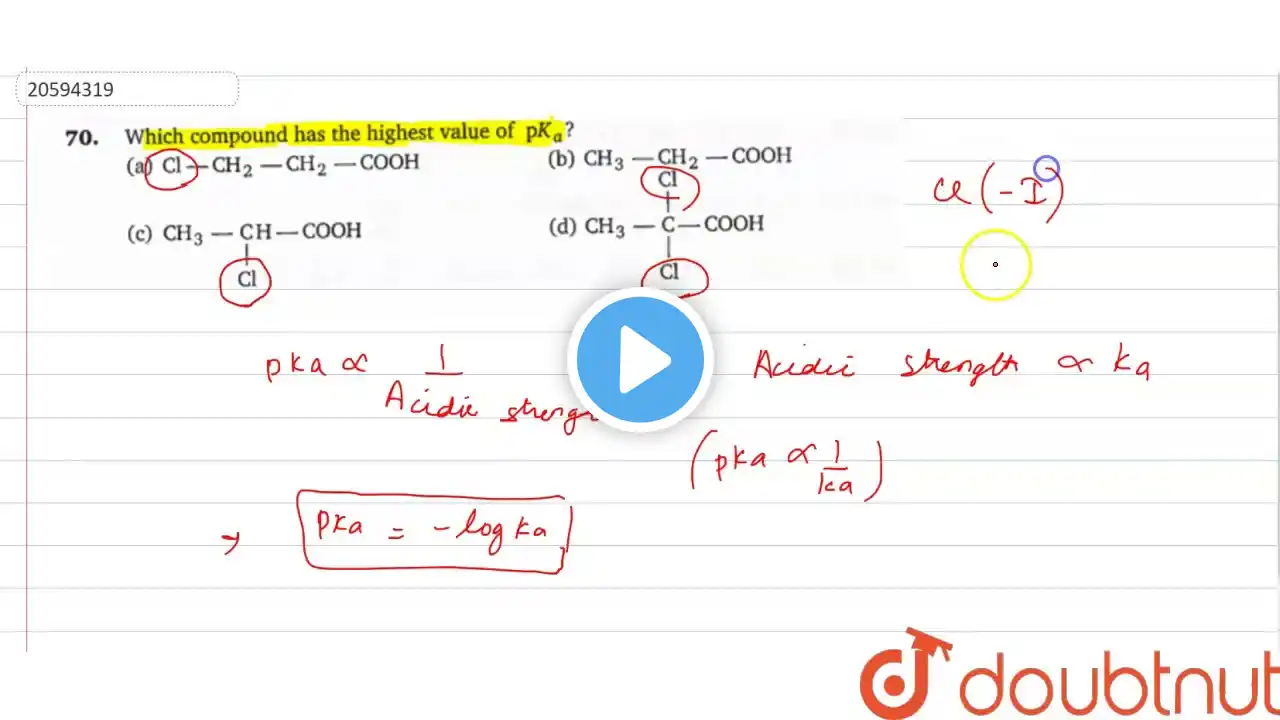 20594319
70. Which compound has the highest value of pKa?
(a) Cl—CH2—CH2—COOH
(b) CH3—CH2—COOH
(c) CH3—CH—COOH
Cl
Cl
(d) CH3—C—COOH
Cl
Cl (-I)
pKa ∝ 1/Acidic
Acidic strength ∝ Ka
(pKa ∝ 1/Ka)
pKa = -log Ka
doubtnut